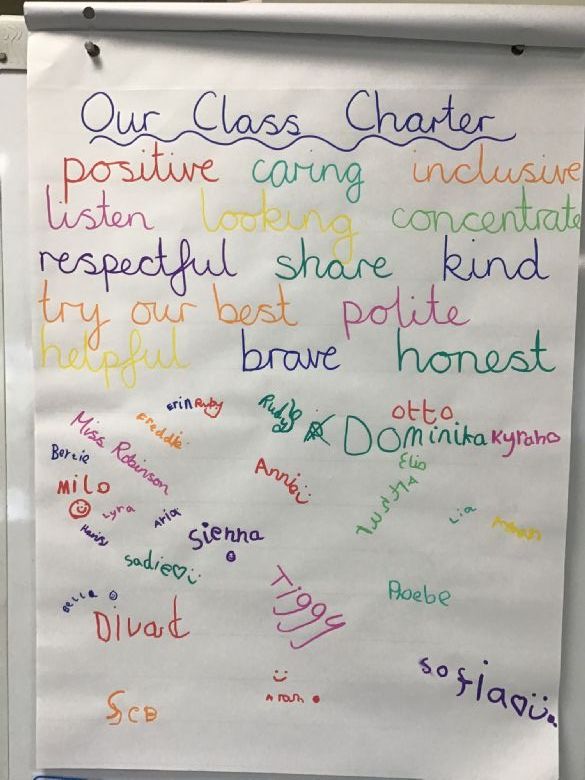 Our Class Charter
positive caring inclusive
listen looking concentrate
respectful share kind
try our best polite
helpful brave honest
Erin Ruby Rudy otto
Miss Robinson Freddie Dominika Kyraho
Bertie Annie Elio
Milo
Lyra Aria Lia
Harry Sienna
Sadie
Bella Tiggy Phoebe
Divat
Sofia
Arash